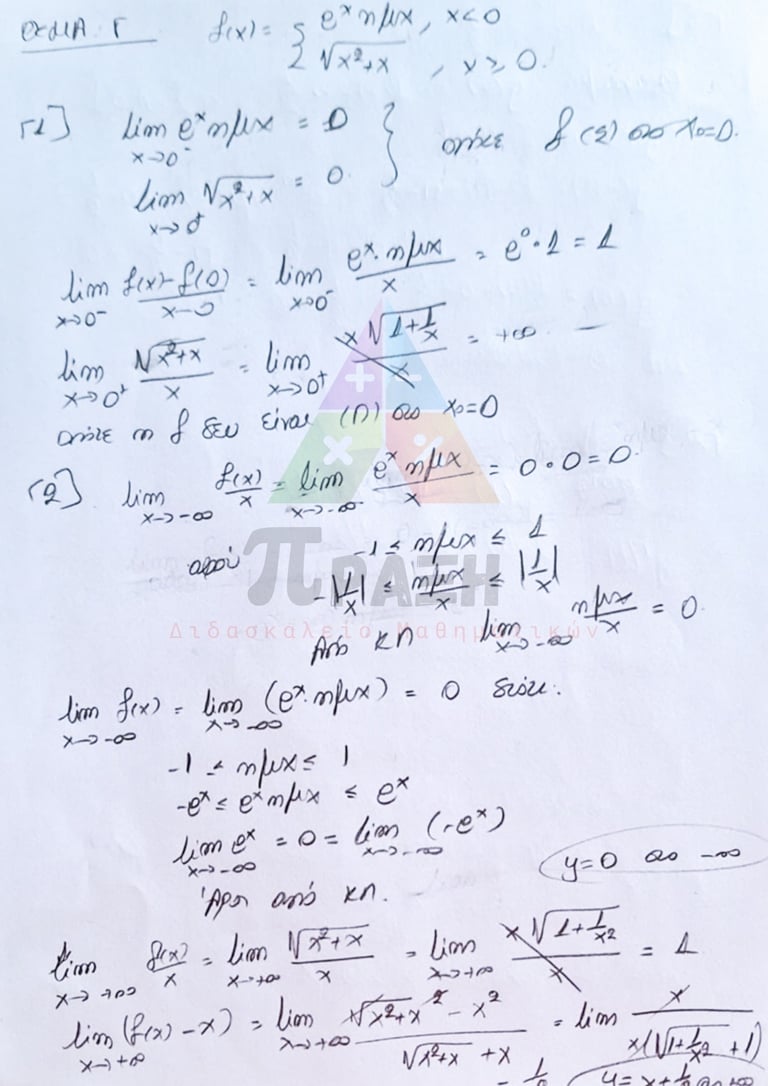 ΘΕΜΑ Γ f(x) = { e^x ημx, x<0
√(x²+x) , x ≥ 0.
Γ1] lim_{x→0⁻} e^x ημx = 0
lim_{x→0⁺} √(x²+x) = 0 } οπότε f (Σ) στο x₀=0.
lim_{x→0⁻} (f(x)-f(0))/(x-0) = lim_{x→0⁻} (e^x·ημx)/x = e⁰·1 = 1
lim_{x→0⁺} √(x²+x)/x = lim_{x→0⁺} (x√(1+1/x))/x = +∞ –
οπότε η f δεν είναι (Π) στο x₀=0
Γ2] lim_{x→-∞} f(x)/x = lim_{x→-∞} (e^x ημx)/x = 0·0 = 0.
αφού -1 ≤ ημx ≤ 1
-|1/x| ≤ ημx/x ≤ |1/x|
πΠΡΑΞΗ
Διδασκαλείο Μαθηματικών
Από ΚΠ lim_{x→-∞} ημx/x = 0.
lim_{x→-∞} f(x) = lim_{x→-∞} (e^x·ημx) = 0 διότι:
-1 ≤ ημx ≤ 1
-e^x ≤ e^x ημx ≤ e^x
lim_{x→-∞} e^x = 0 = lim_{x→-∞} (-e^x)
Άρα από ΚΠ.
y=0 στο -∞
lim_{x→+∞} f(x)/x = lim_{x→+∞} √(x²+x)/x = lim_{x→+∞} (x√(1+1/x²))/x = 1
lim_{x→+∞} (f(x)-x) = lim_{x→+∞} (√(x²+x)² - x²)/(√(x²+x) + x) = lim x/(x(√(1+1/x²)+1))
y = x+1/2 στο +∞